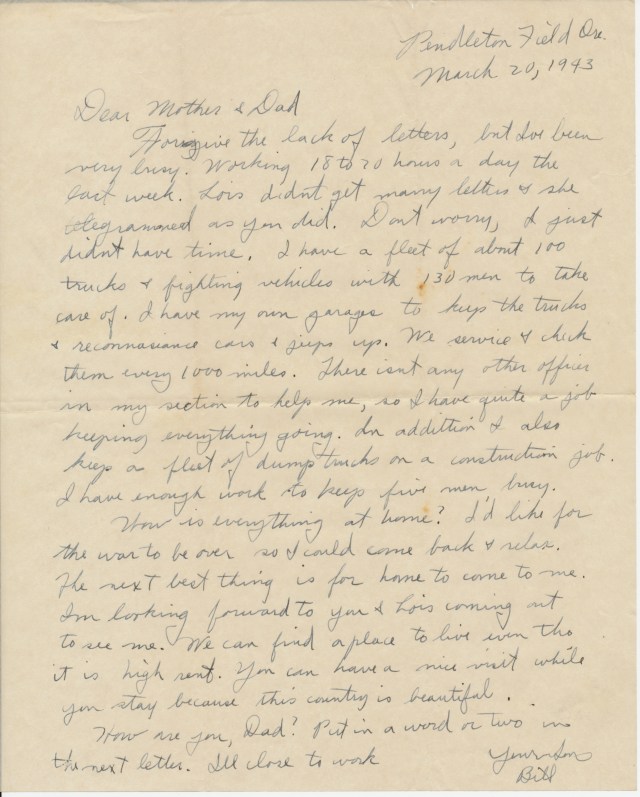 Pendleton Field Ore.
March 20, 1943
Dear Mother & Dad
Forgive the lack of letters, but I've been
very busy. Working 18 to 20 hours a day the
last week. Lois didn't get many letters & she
telegrammed as you did. Dont worry, I just
didnt have time. I have a fleet of about 100
trucks & fighting vehicles with 130 men to take
care of. I have my own garages to keep the trucks
& reconnasiance cars & jeeps up. We service & check
them every 1000 miles. There isnt any other officer
in my section to help me, so I have quite a job
keeping everything going. In addittion I also
keep a fleet of dump trucks on a construction job.
I have enough work to keep five men busy.
How is everything at home? I'd like for
the war to be over so I could come back & relax.
The next best thing is for home to come to me.
Im looking forward to you & Lois coming out
to see me. We can find a place to live even tho
it is high rent. You can have a nice visit while
you stay because this country is beautiful.
How are you, Dad? Put in a word or two in
the next letter. I'll close to work
Your Son
Bill